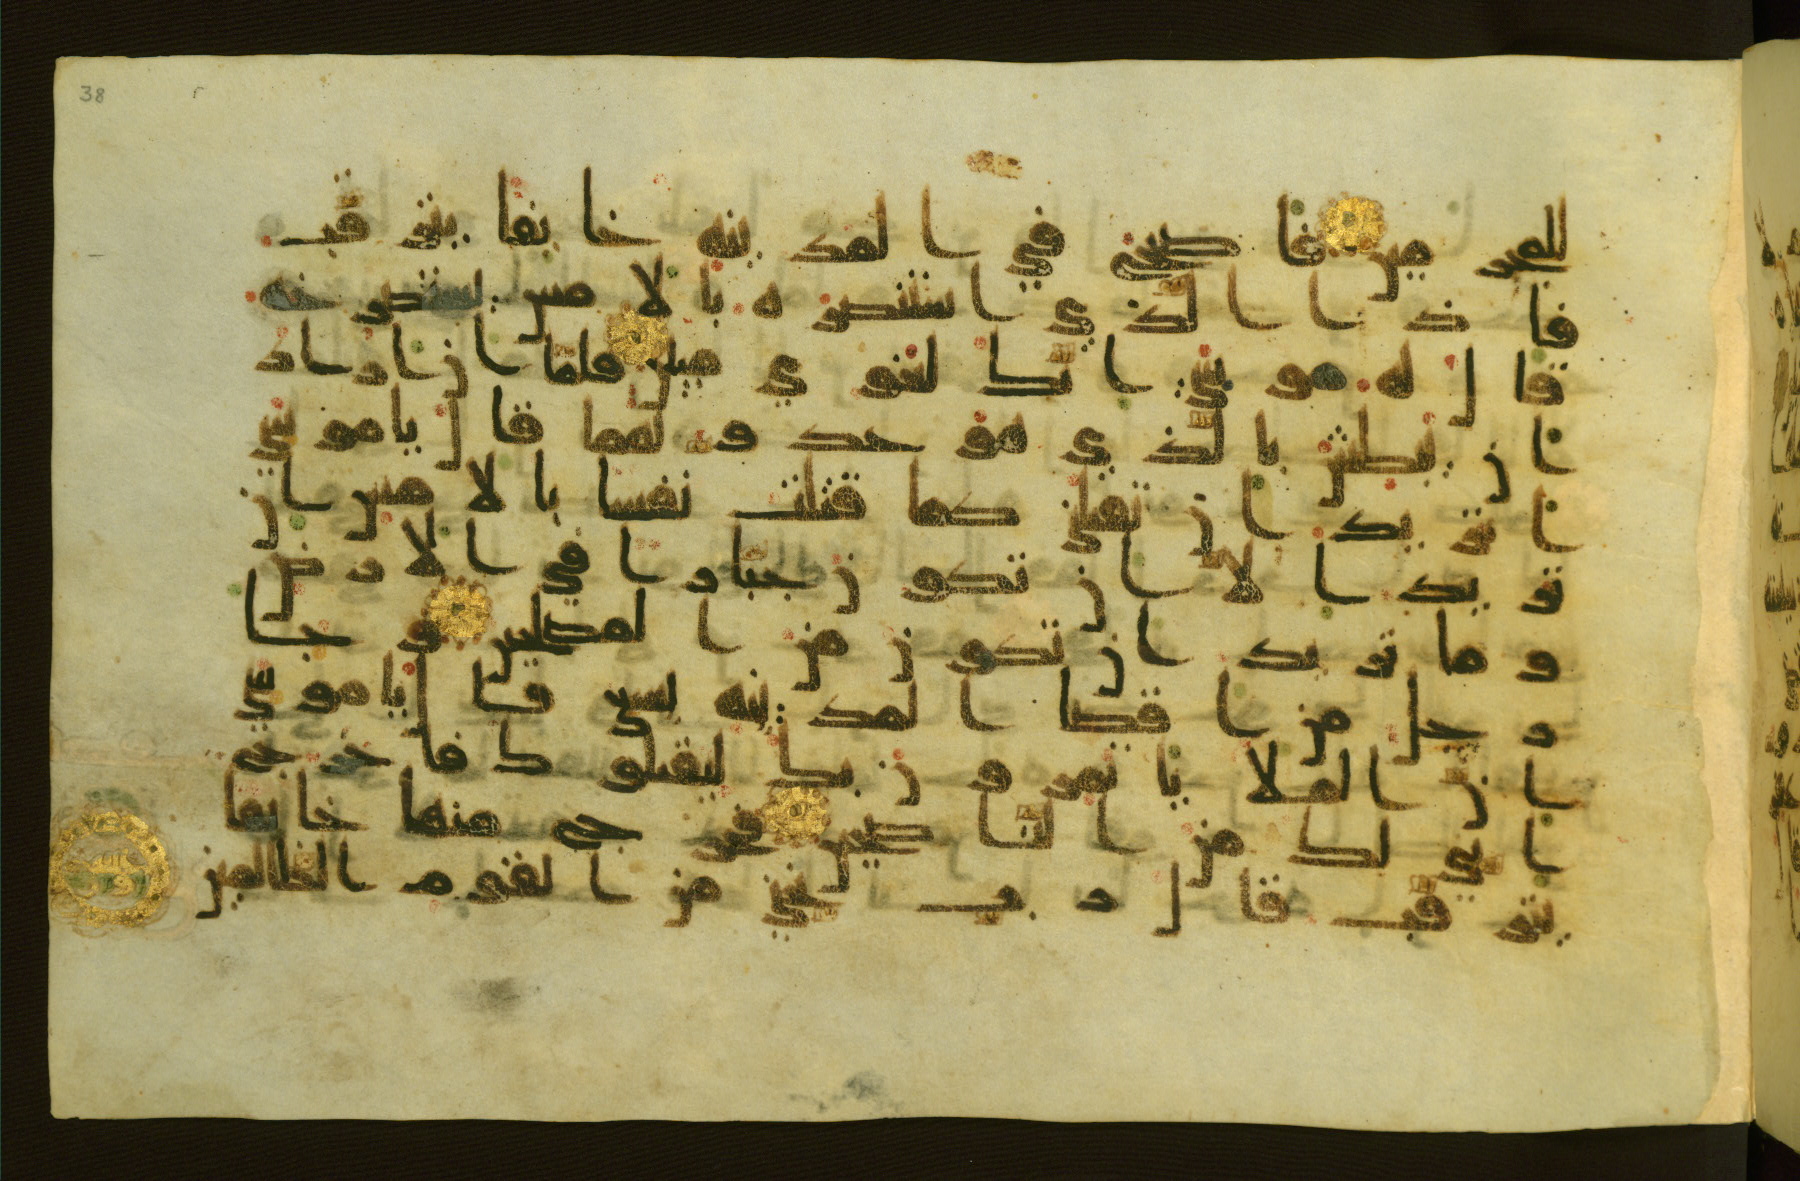 38
للمجرمين فاصبح في المدينه خايفا يترقب
فاذا الذي استنصره بالامس يستصرخه
قال له موسى انك لغوي مبين فلما ان اراد
ان يبطش بالذي هو عدو لهما قال يا موسى
اتريد ان تقتلني كما قتلت نفسا بالامس ان
تريد الا ان تكون جبارا في الارض
وما تريد ان تكون من المصلحين وجا
رجل من اقصا المدينه يسعى قال يا موسى
ان الملا ياتمرون بك ليقتلوك فاخرج
اني لك من الناصحين فخرج منها خايفا
يترقب قال رب نجني من القوم الظالمين